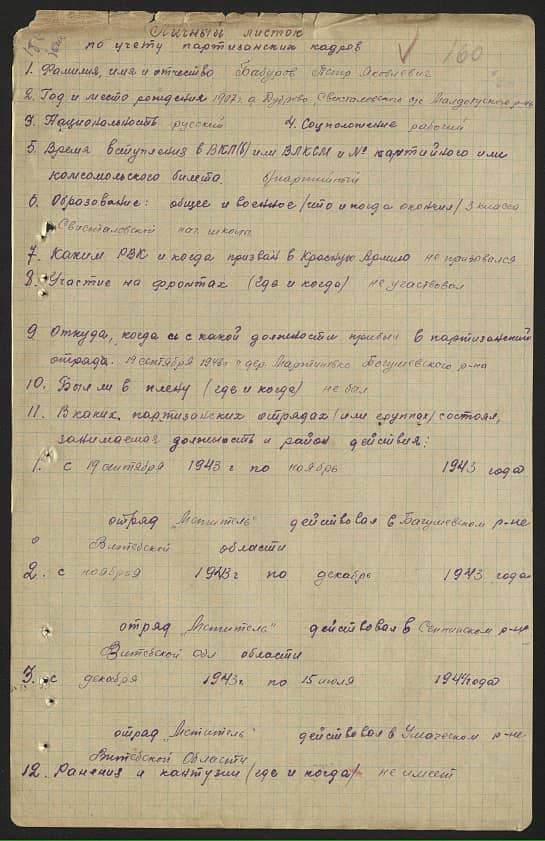 Личный листок
160
по учету партизанских кадров
1. Фамилия, имя и отчество Бабуров Петр Яковлевич
2. Год и место рождения 1907 г. д. Дуброво, Свистоловского с/с
3. Национальность русский 4. Соцположение рабочий
5. Время вступления в ВКП(б) или ВЛКСМ и № партийного или
комсомольского билета. б/партийный
6. Образование: общее и военное /что и когда окончил/ 3 класса
нач. школа
7. Каким РВК и когда призван в Красную Армию не призовался
8. Участие на фронтах (где и когда/ не участвовал
9. Откуда, когда и с какой должности прибыл в партизанский
отряд. 19 сентября 1943 г. дер. Мартиново Богушевского р-на
10. Был ли в плену (где и когда) не бал
11. В каких партизанских отрядах /или группах/ состоял,
занимаемая должность и район действия:
1. с 19 сентября 1943 г по ноябрь 1943 года
отряд "Мститель" действовал в Багушевском р-не
Витебской области
2. с ноября 1943 г по декабрь 1943 года
отряд "Мститель" действовал в Сеннинском р-не
Витебской Обл области
3. с декабря 1943 г. по 15 июля 1944 года
отряд "Мститель" действовал в Ушачском р-не
Витебской Области
12. Ранения и кантузии (где и когда) не имеет